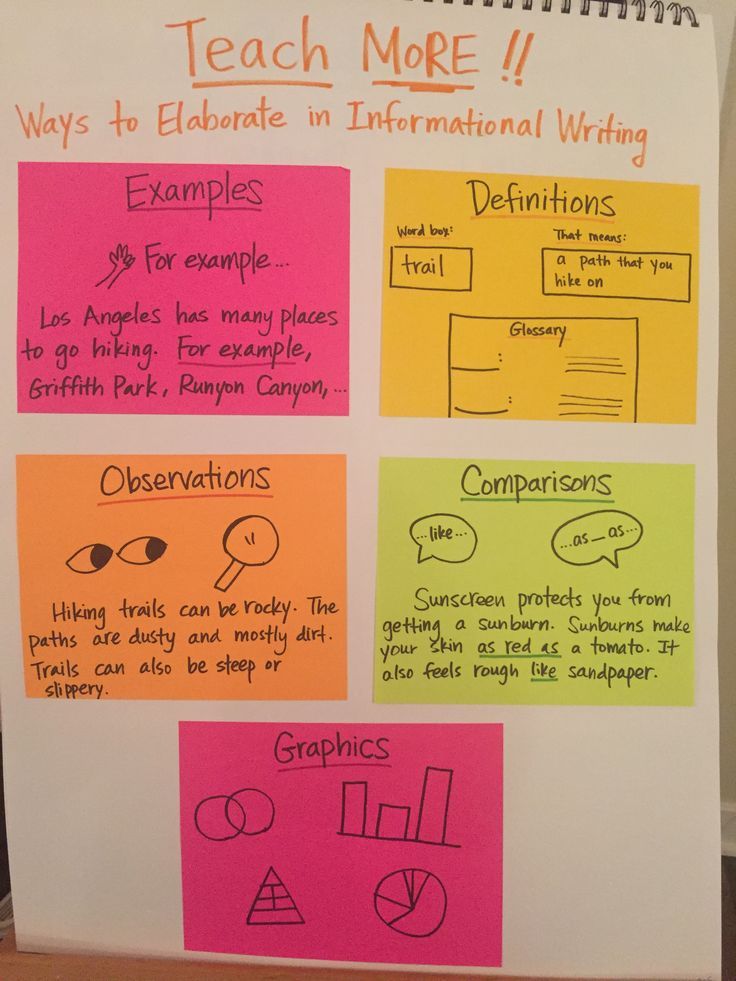 Teach MORE!!
Ways to Elaborate in Informational Writing
Examples
For example...
Los Angeles has many places
to go hiking. For example,
Griffith Park, Runyon Canyon,...
Definitions
Word box:
trail
That means:
a path that you
hike on
Glossary
Observations
Hiking trails can be rocky. The
paths are dusty and mostly dirt.
Trails can also be steep or
slippery.
Comparisons
...like...
...as_as...
Sunscreen protects you from
getting a sunburn. Sunburns make
your skin as red as a tomato. It
also feels rough like sandpaper.
Graphics